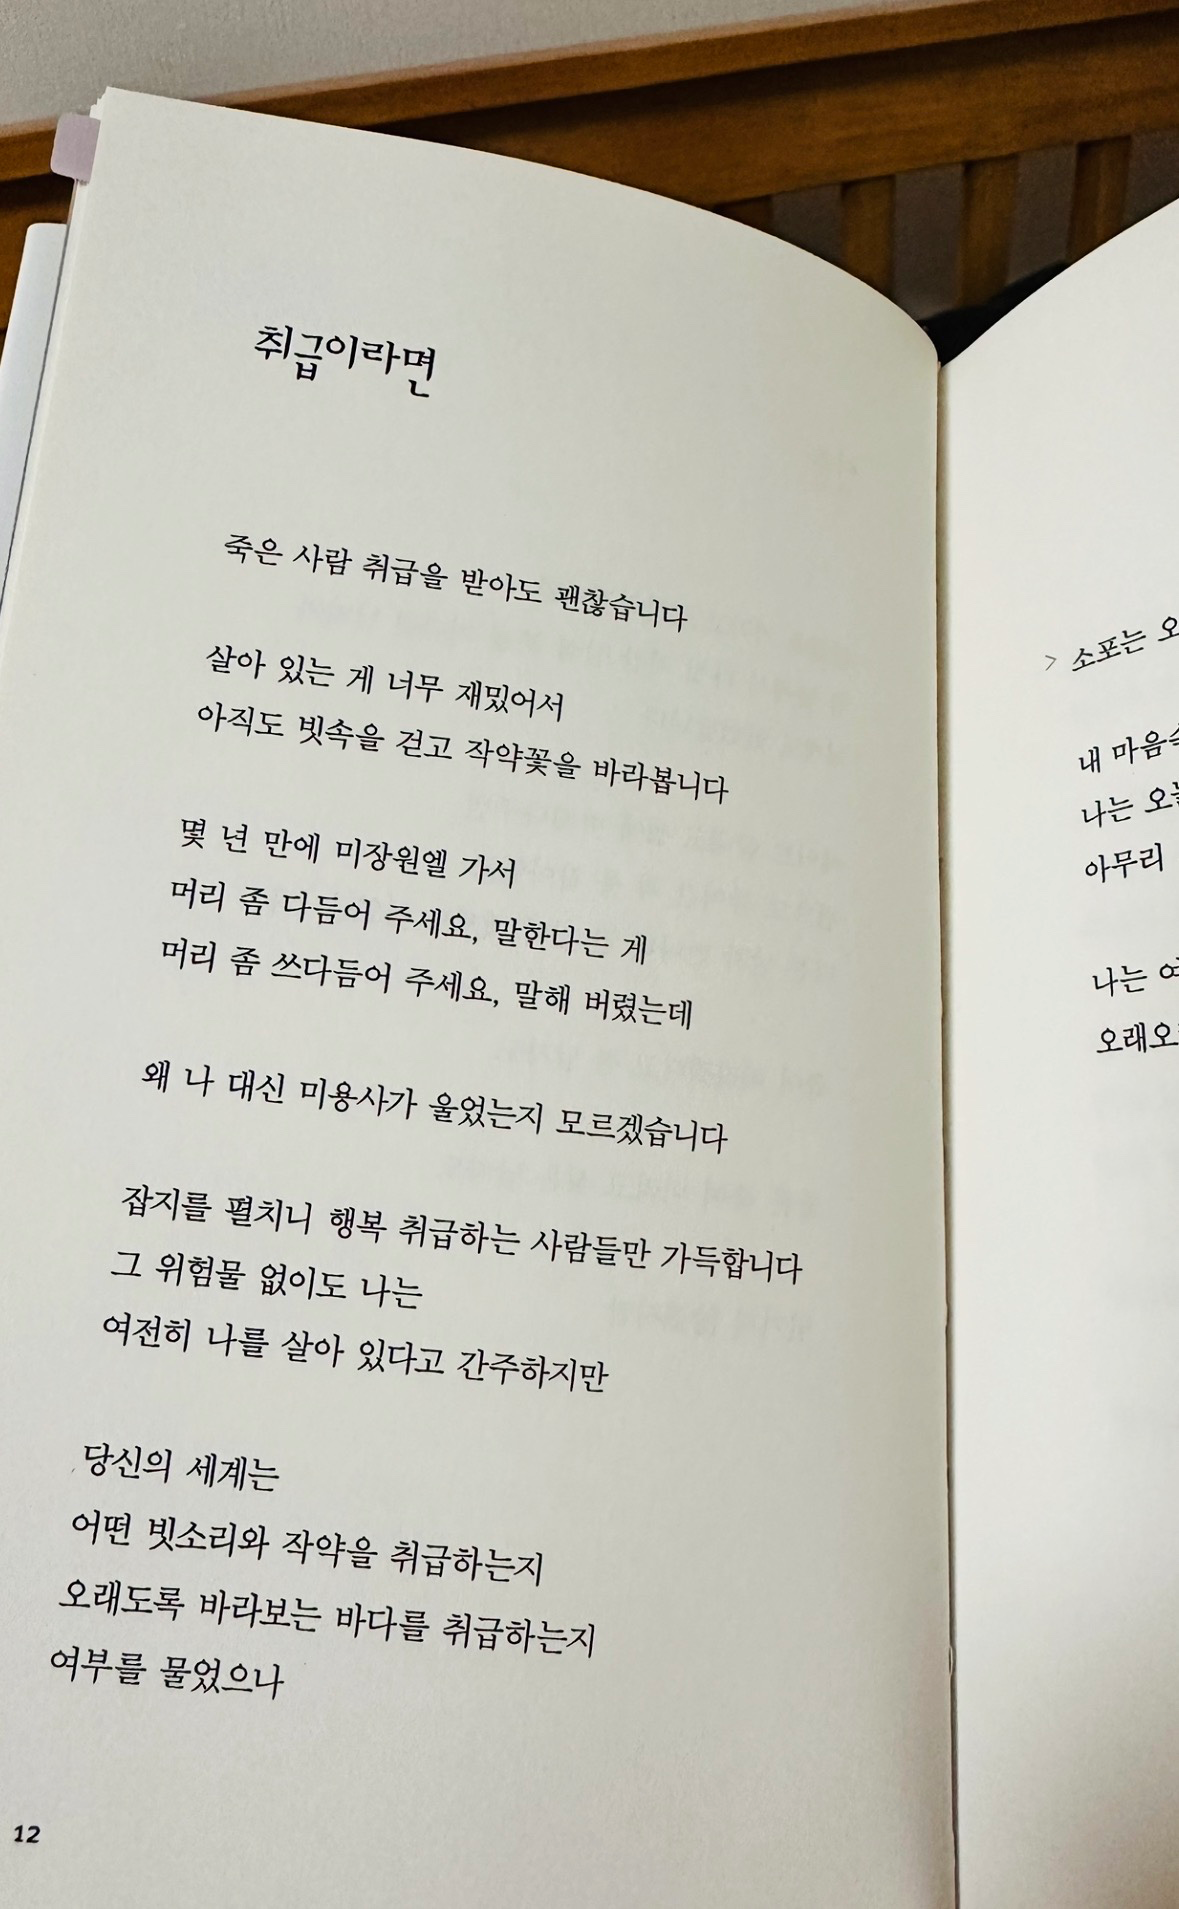 취급이라면
죽은 사람 취급을 받아도 괜찮습니다
살아 있는 게 너무 재밌어서
아직도 빗속을 걷고 작약꽃을 바라봅니다
몇 년 만에 미장원엘 가서
머리 좀 다듬어 주세요, 말한다는 게
머리 좀 쓰다듬어 주세요, 말해 버렸는데
왜 나 대신 미용사가 울었는지 모르겠습니다
잡지를 펼치니 행복 취급하는 사람들만 가득합니다
그 위험물 없이도 나는
여전히 나를 살아 있다고 간주하지만
당신의 세계는
어떤 빗소리와 작약을 취급하는지
오래도록 바라보는 바다를 취급하는지
여부를 물었으나
12
> 소포는
내 마음속
나는
아무리
나는